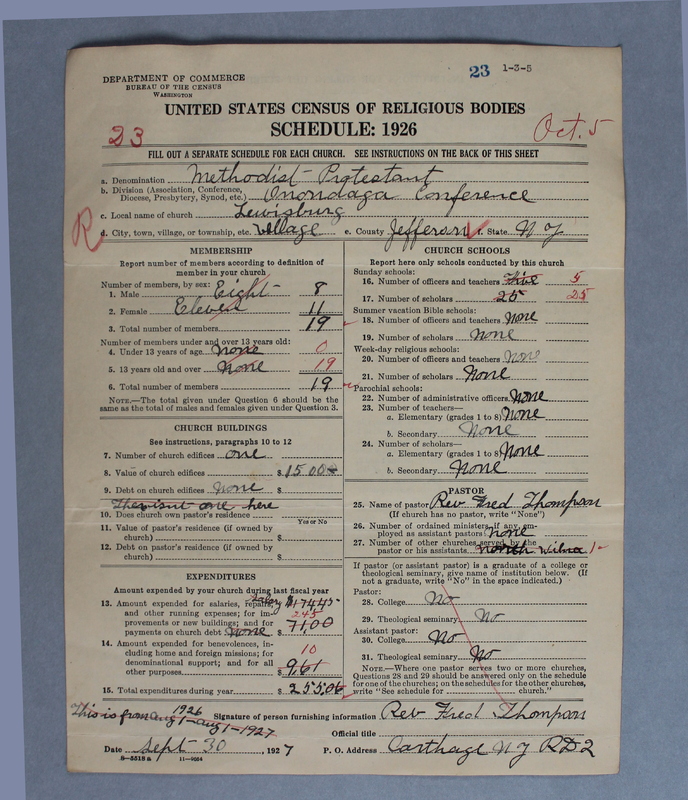 23 1-3-5
DEPARTMENT OF COMMERCE
BUREAU OF THE CENSUS
WASHINGTON
UNITED STATES CENSUS OF RELIGIOUS BODIES
23 SCHEDULE: 1926 Oct. 5
FILL OUT A SEPARATE SCHEDULE FOR EACH CHURCH. SEE INSTRUCTIONS ON THE BACK OF THIS SHEET
a. Denomination Methodist Protestant
b. Division (Association, Conference, Diocese, Presbytery, Synod, etc.) Onondaga Conference
c. Local name of church Lewisburg
R d. City, town, village, or township, etc. Village e. County Jefferson f. State N Y
MEMBERSHIP
Report number of members according to definition of
member in your church
Number of members, by sex:
1. Male Eight 8
2. Female Eleven 11
3. Total number of members 19
Number of members under and over 13 years old:
4. Under 13 years of age None 0
5. 13 years old and over None 19
6. Total number of members 19
NOTE.—The total given under Question 6 should be the
same as the total of males and females given under Question 3.
CHURCH BUILDINGS
See instructions, paragraphs 10 to 12
7. Number of church edifices one
8. Value of church edifices $1500
9. Debt on church edifices None $
There isnt one here
10. Does church own pastor's residence
Yes or No
11. Value of pastor's residence (if owned by
church) $
12. Debt on pastor's residence (if owned by
church) $
EXPENDITURES
Amount expended by your church during last fiscal year
13. Amount expended for salaries, repairs, Salary $174.45
and other running expenses; for im- 245
provements or new buildings; and for 71,00
payments on church debt None $
14. Amount expended for benevolences, in- 10
cluding home and foreign missions; for
denominational support; and for all
other purposes $ 9.61
15. Total expenditures during year $255.06
CHURCH SCHOOLS
Report here only schools conducted by this church
Sunday schools:
16. Number of officers and teachers Five 5
17. Number of scholars 25 25
Summer vacation Bible schools:
18. Number of officers and teachers None
19. Number of scholars None
Week-day religious schools:
20. Number of officers and teachers None
21. Number of scholars None
Parochial schools:
22. Number of administrative officers None
23. Number of teachers—
a. Elementary (grades 1 to 8) None
b. Secondary None
24. Number of scholars—
a. Elementary (grades 1 to 8) None
b. Secondary None
PASTOR
25. Name of pastor Rev Fred Thompson
(If church has no pastor, write "None")
26. Number of ordained ministers, if any, em-
ployed as assistant pastors none
27. Number of other churches served by the
pastor or his assistants North Wilna 1
If pastor (or assistant pastor) is a graduate of a college or
theological seminary, give name of institution below. (If
not a graduate, write "No" in the space indicated.)
Pastor:
28. College No
29. Theological seminary No
Assistant pastor:
30. College No
31. Theological seminary No
NOTE.—Where one pastor serves two or more churches,
Questions 28 and 29 should be answered only on the schedule
for one of the churches; on the schedules for the other churches,
write "See schedule for church."
This is from 1926 aug 1 - aug 1 - 1927
Signature of person furnishing information Rev Fred Thompson
Official title
Date Sept 30, 1927 P. O. Address Carthage N Y RD 2
8-5518 a 11-9054